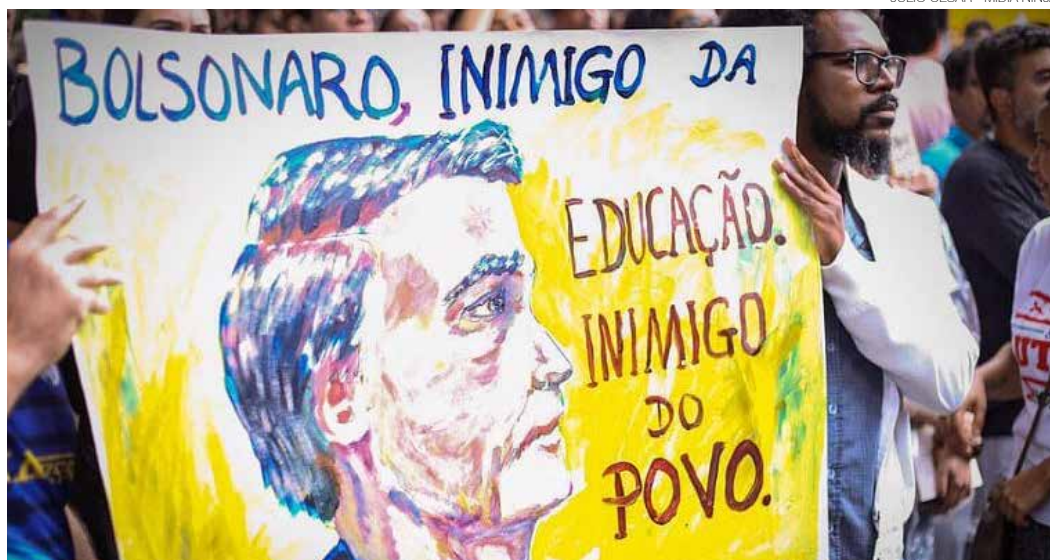 BOLSONARO, INIMIGO DA
EDUCAÇÃO.
INIMIGO
DO
POVO.
UT